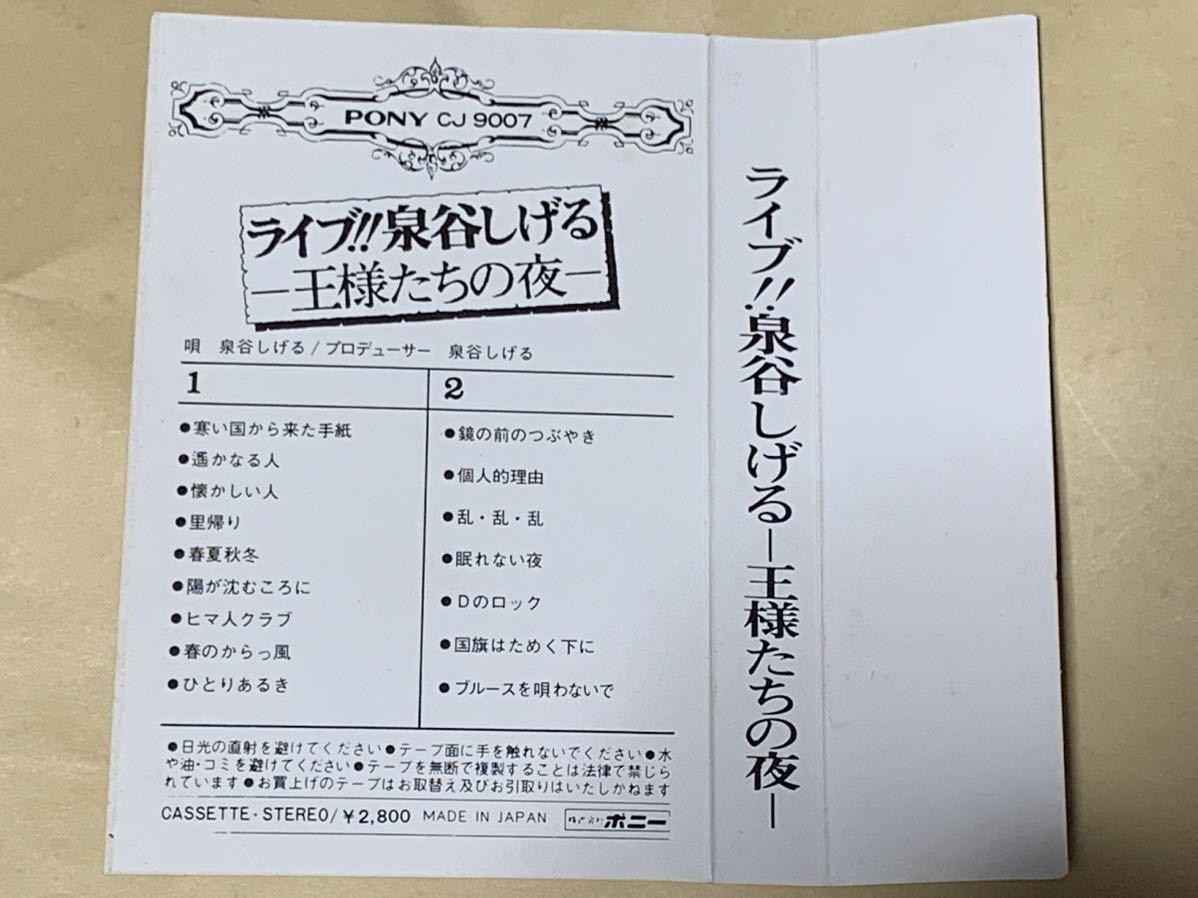 PONY CJ 9007
ライブ!!泉谷しげる
―王様たちの夜―
唄 泉谷しげる/プロデューサー 泉谷しげる
1
●寒い国から来た手紙
●遙かなる人
●懐かしい人
●里帰り
●春夏秋冬
●陽が沈むころに
●ヒマ人クラブ
●春のからっ風
●ひとりあるき
2
●鏡の前のつぶやき
●個人的理由
●乱・乱・乱
●眠れない夜
●Dのロック
●国旗はためく下に
●ブルースを唄わないで
●日光の直射を避けてください●テープ面に手を触れないでください●水
や油・ゴミを避けてください●テープを無断で複製することは法律で禁じら
れています●お買上げのテープはお取替え及びお引取りはいたしかねます
CASSETTE・STEREO/¥2,800 MADE IN JAPAN 株式会社ポニー
ライブ!!泉谷しげる―王様たちの夜―